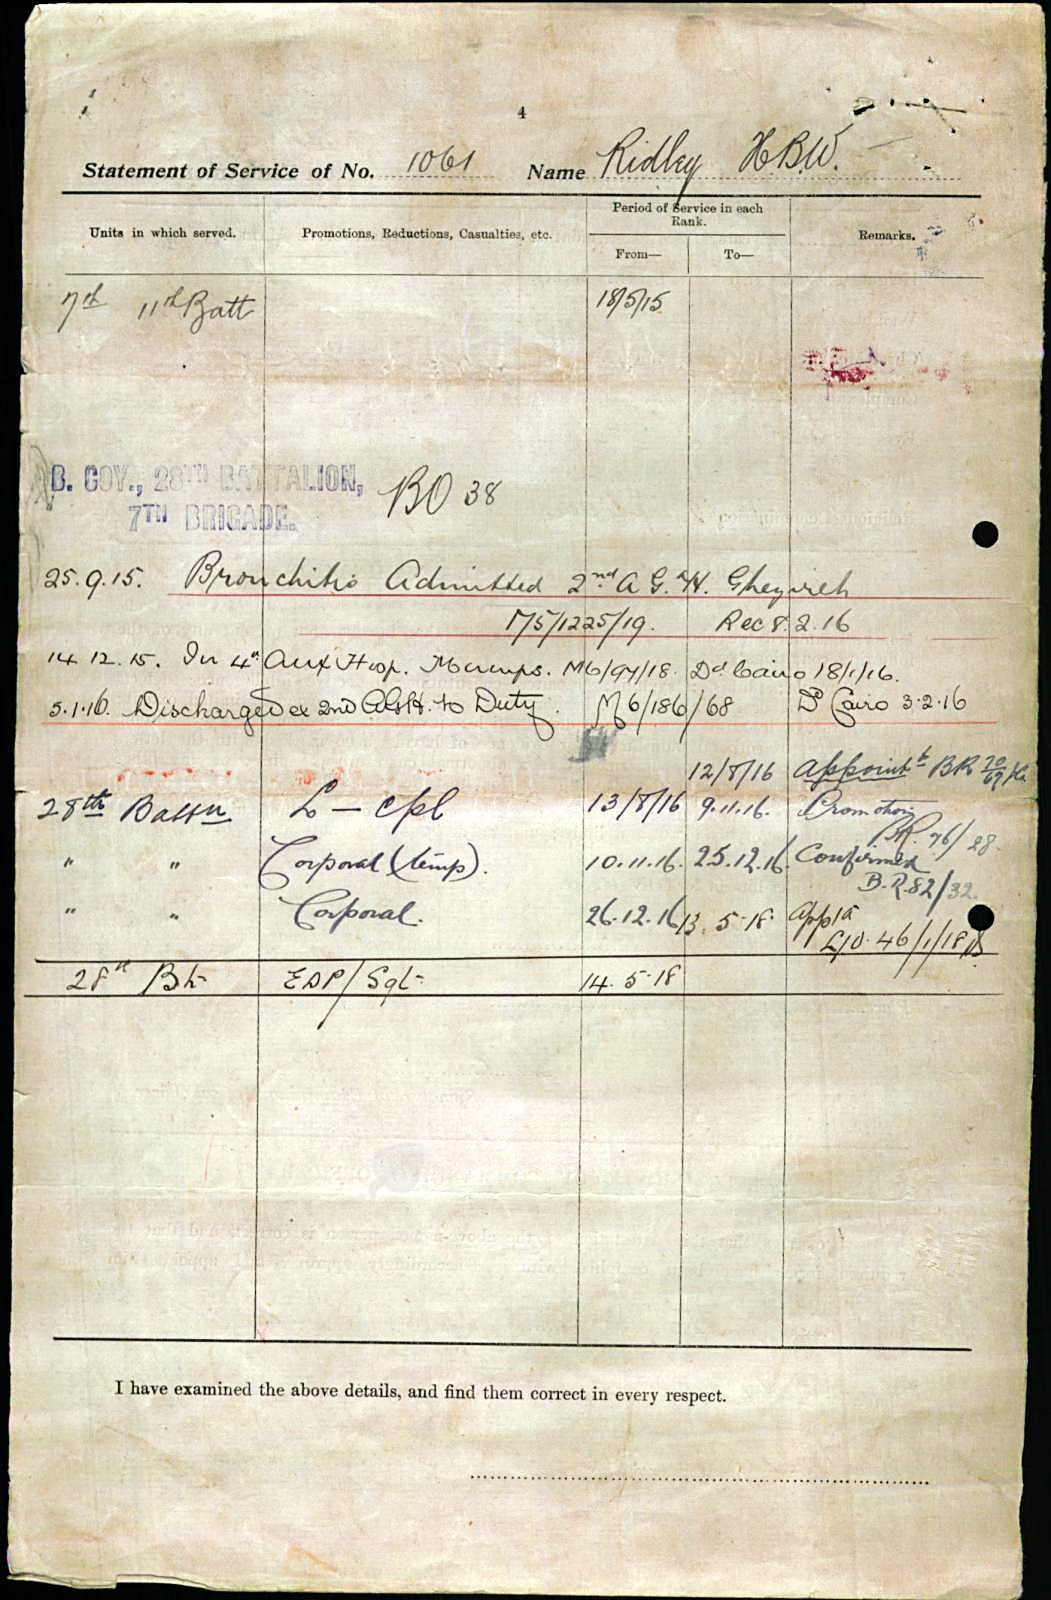 4
Statement of Service of No. 1061 Name Ridley H.B.W.
Units in which served. Promotions, Reductions, Casualties, etc. Period of Service in each Rank. From— To— Remarks.
7th 11th Batt 18/5/15
B. COY., 28TH BATTALION, BO 38
7TH BRIGADE.
25.9.15. Bronchitis Admitted 2nd A G. H. Ghezireh
M5/1225/19. Rec 8.2.16
14.12.15. In 4th Aux Hosp. Mumps. M6/94/18. Dd Cairo 18/1/16.
5.1.16. Discharged ex 2nd AGH. to Duty. M6/186/68 Dd Cairo 3.2.16
12/8/16 Appointt BR 70/69
28th Battn L – Cpl 13/8/16 9.11.16. Promotion
BR. 76/28
" " Corporal (temp). 10.11.16. 25.12.16. Confirmed
B.R.82/32.
" " Corporal. 26.12.16 13.5.18. App
46/1/18
28th Bn EDP/Sgt 14.5.18
I have examined the above details, and find them correct in every respect.